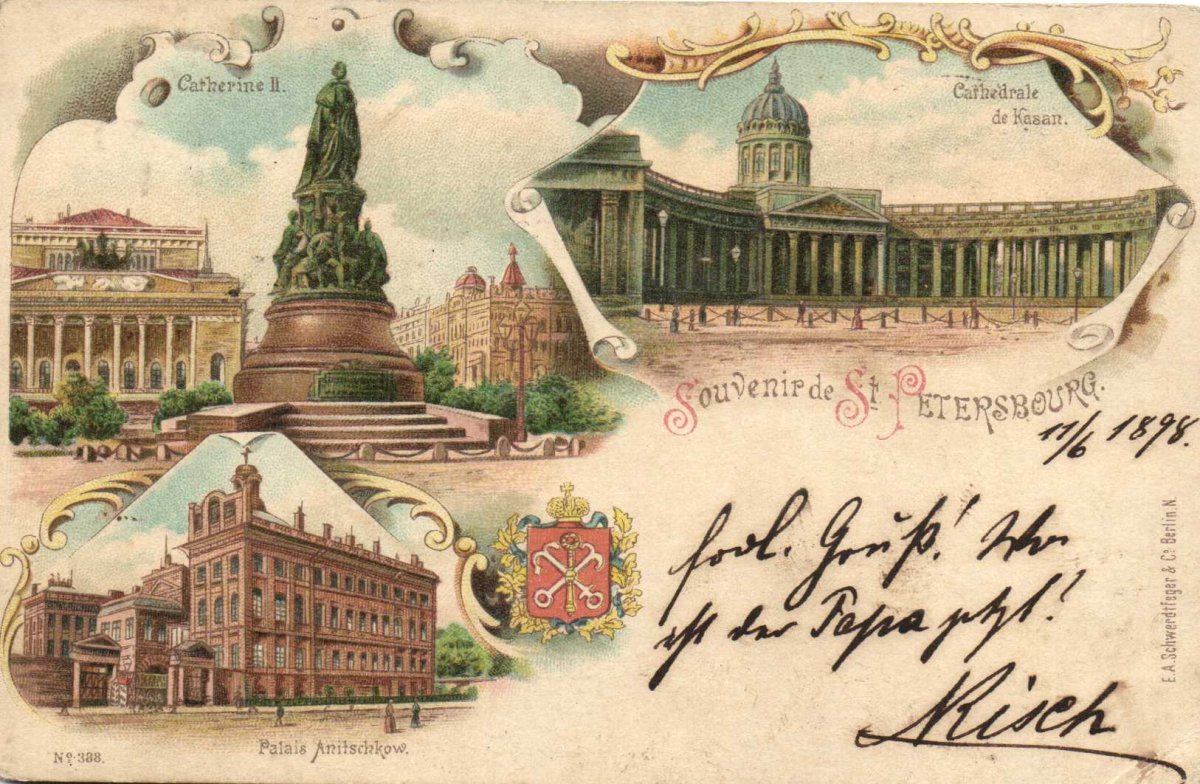 Catherine II.
Cathédrale
de Kasan.
Souvenir de St. Petersbourg.
11/6 1898.
Gruß! Wo
ist der Papa jetzt?
Risch
E.A. Schwerdtfeger & Co. Berlin.N.
Palais Anitschkow.
No. 388.